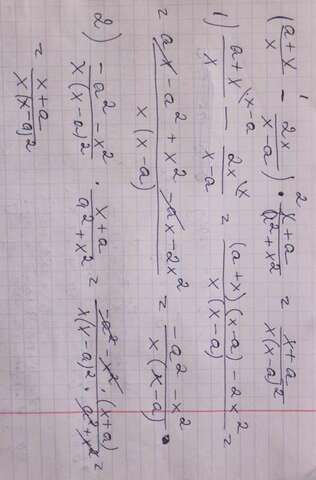 1 2
(a+x/x - 2x/x-a) · x+a/a²+x² = x+a/x(x-a)²
1) a+x/x (x-a - 2x/x-a (x = (a+x)(x-a)-2x²/x(x-a) =
= ax-a²+x²-ax-2x²/x(x-a) = -a²-x²/x(x-a).
2) -a²-x²/x(x-a)² · x+a/a²+x² = -a²-x²·(x+a)/x(x-a)²·a²+x² =
= x+a/x(x-a)²